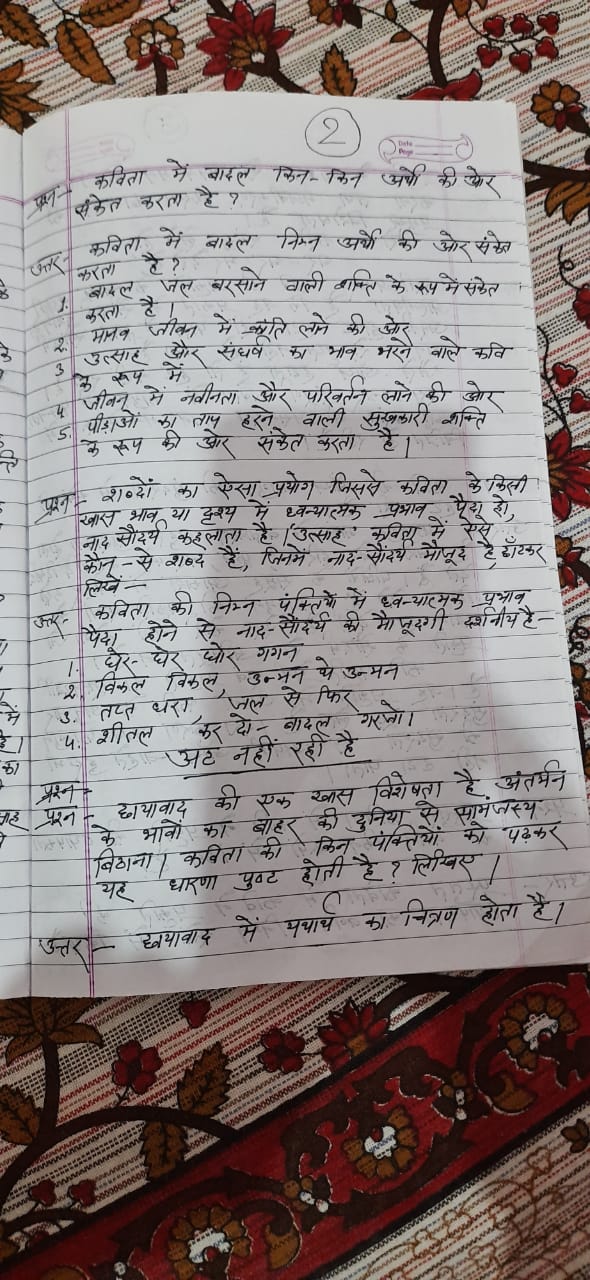 2
Date
Page
प्रश्न- कविता में बादल किन-किन अर्थों की ओर
संकेत करता है ?
उत्तर- कविता में बादल निम्न अर्थों की ओर संकेत
करता है ?
1. बादल जल बरसाने वाली शक्ति के रूप में संकेत
करता है।
2. मानव जीवन में क्रांति लाने की ओर
3 उत्साह और संघर्ष का भाव भरने वाले कवि
के रूप में
4 जीवन में नवीनता और परिवर्तन लाने की ओर
5. पीड़ाओं का ताप हरने वाली सुखकारी शक्ति
के रूप की ओर संकेत करता है।
प्रश्न- शब्दों का ऐसा प्रयोग जिससे कविता के किसी
खास भाव या दृश्य में ध्वन्यात्मक प्रभाव पैदा हो,
नाद सौंदर्य कहलाता है। उत्साह कविता में ऐसे
कौन-से शब्द हैं, जिनमें नाद-सौंदर्य मौजूद है, छाँटकर
लिखें-
उत्तर- कविता की निम्न पंक्तियों में ध्वन्यात्मक प्रभाव
पैदा होने से नाद-सौंदर्य की मौजूदगी दर्शनीय है-
1. घेर-घेर घोर गगन
2. विकल विकल, उन्मन थे उन्मन
3. तप्त धरा, जल से फिर
4. शीतल कर दो- बादल गरजो।
अट नहीं रही है
प्रश्न-
प्रश्न- छायावाद की एक खास विशेषता है अंतर्मन
के भावों का बाहर की दुनिया से सामंजस्य
बिठाना। कविता की किन पंक्तियों को पढ़कर
यह धारणा पुष्ट होती है? लिखिए।
उत्तर- छायावाद में यथार्थ का चित्रण होता है।